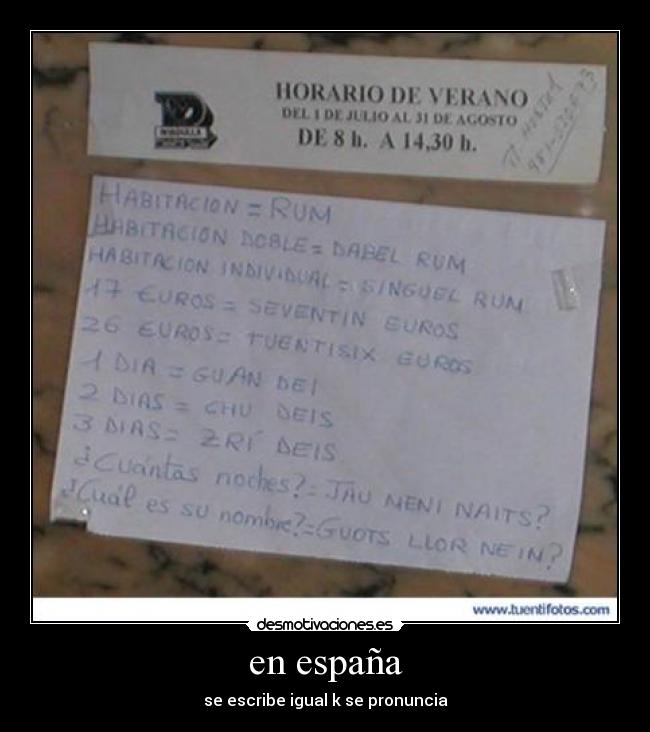 HORARIO DE VERANO
DEL 1 DE JULIO AL 31 DE AGOSTO
DE 8 h. A 14,30 h.
HABITACION = RUM
HABITACION DOBLE = DABEL RUM
HABITACION INDIVIDUAL = SINGUEL RUM
17 EUROS = SEVENTIN EUROS
26 EUROS = TUENTISIX EUROS
1 DIA = GUAN DEI
2 DIAS = CHU DEIS
3 DIAS = ZRÍ DEIS
¿Cuántas noches? = JAU MENI NAITS?
¿Cuál es su nombre? = GUOTS LLOR NEIN?
www.tuentifotos.com
desmotivaciones.es
en españa
se escribe igual k se pronuncia